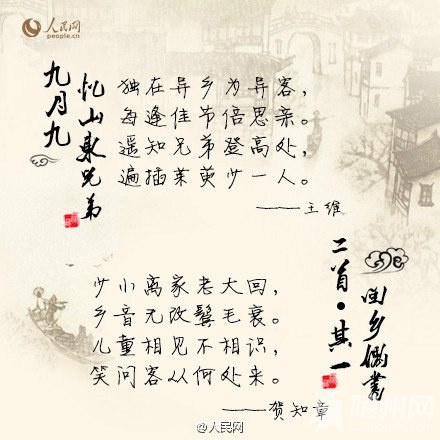 人民网
people.cn
九月九
忆山東兄弟
独在异乡为异客，
每逢佳节倍思亲。
遥知兄弟登高处，
遍插茱萸少一人。
——王维
回乡偶書
二首·其一
少小离家老大回，
乡音无改鬓毛衰。
儿童相见不相识，
笑问客从何处来。
——贺知章
@人民网